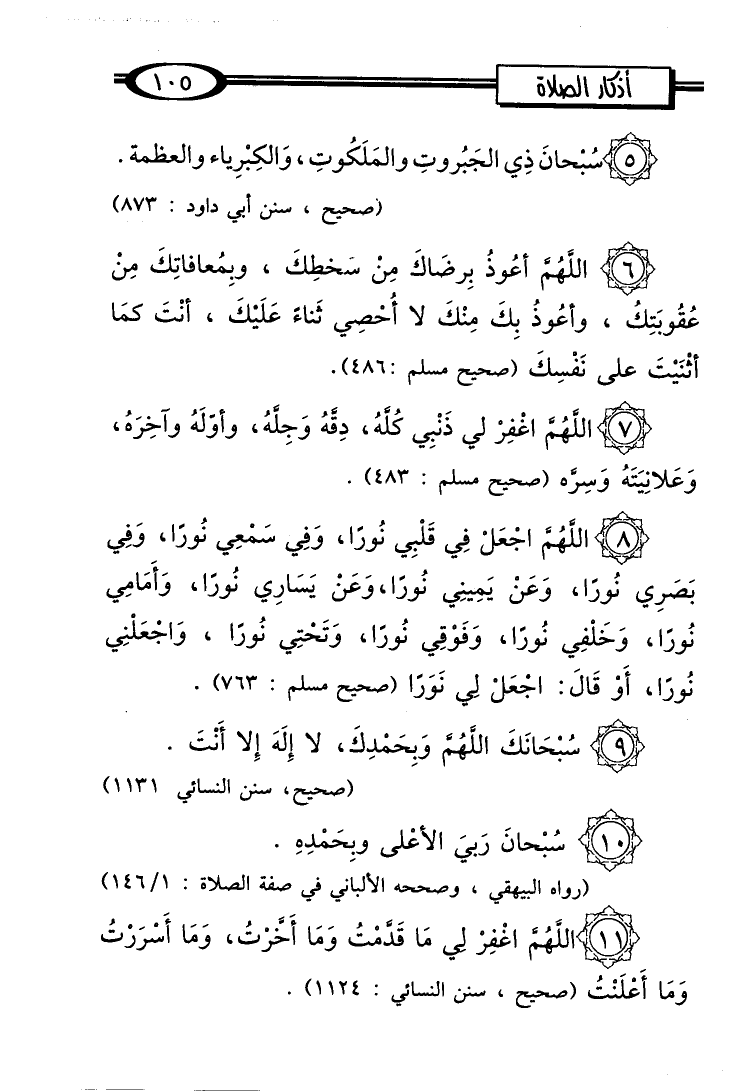 أذكار الصلاة
١٠٥
٥ سُبْحانَ ذِي الجَبُروتِ والمَلَكُوتِ، وَالكِبْرِياء والعظمة .
(صحيح ، سنن أبي داود : ٨٧٣)
٦ اللَّهُمَّ أعُوذُ بِرضَاكَ مِنْ سَخطِكَ ، وبِمُعافاتِكَ مِنْ
عُقُوبَتِكُ ، وأعُوذُ بِكَ مِنْكَ لا أُحْصِي ثَناءً عَلَيْكَ ، أنْتَ كمَا
أثْنَيْتَ على نَفْسِكَ (صحيح مسلم :٤٨٦).
٧ اللَّهُمَّ اغْفِرْ لي ذَنْبِي كُلَّهُ، دِقَّهُ وَجِلَّهُ، وأوّلَهُ وآخِرَهُ،
وَعَلانِيَتَهُ وَسِرَّه (صحيح مسلم : ٤٨٣) .
٨ اللَّهُمَّ اجْعَلْ فِي قَلْبِي نُورًا، وَفِي سَمْعِي نُورًا، وَفِي
بَصَرِي نُورًا، وَعَنْ يَمِينِي نُورًا،وَعَنْ يَسَارِي نُورًا، وَأَمَامِي
نُورًا، وَخَلْفِي نُورًا، وَفَوْقِي نُورًا، وَتَحْتِي نُورًا ، وَاجْعَلْنِي
نُورًا، أَوْ قَالَ: اجْعَلْ لِي نَوَرًا (صحيح مسلم : ٧٦٣) .
٩ سُبْحَانَكَ اللَّهُمَّ وَبِحَمْدِكَ، لا إِلَهَ إِلا أَنْتَ .
(صحيح، سنن النسائي ١١٣١)
١٠ سُبْحانَ رَبيَ الأعْلى وبِحَمْدِهِ .
(رواه البيهقي ، وصححه الألباني في صفة الصلاة : ١٤٦/١)
١١ اللَّهُمَّ اغْفِرْ لِي مَا قَدَّمْتُ وَمَا أَخَّرْتُ، وَمَا أَسْرَرْتُ
وَمَا أَعْلَنْتُ (صحيح ، سنن النسائي : ١١٢٤) .